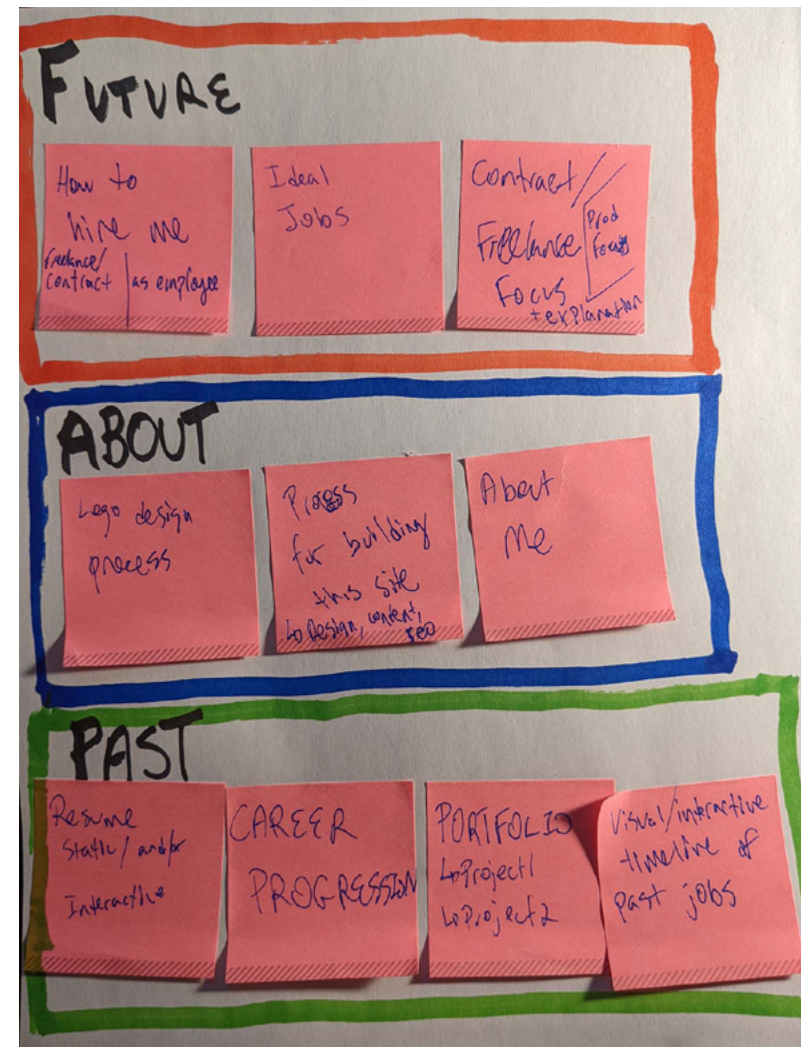 FUTURE
How to
hire me
freelance/
contract | as employee
Ideal
Jobs
Contract/
Freelance
Focus
+ explanation
Prod
Focus
ABOUT
Logo design
process
Process
for building
this site
↳ Design, content,
SEO
About
Me
PAST
Resume
Static/ and/or
Interactive
CAREER
PROGRESSION
PORTFOLIO
↳ Project1
↳ Project2
Visual/interactive
timeline of
past jobs